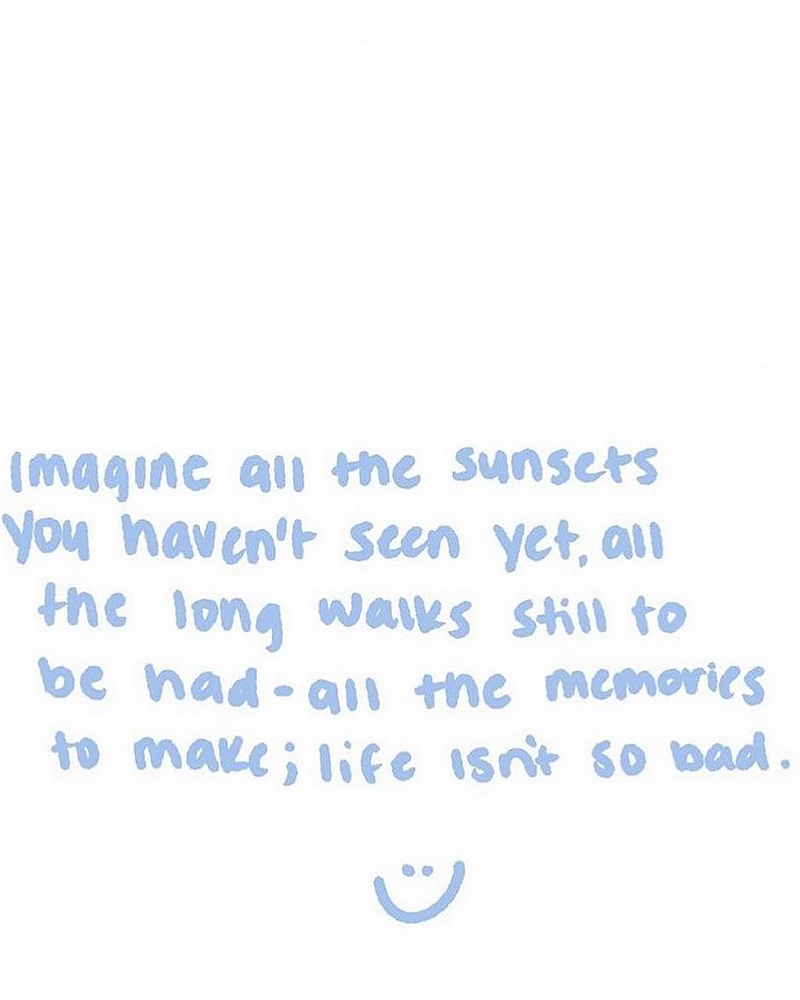 Imagine all the sunsets
you haven't seen yet, all
the long walks still to
be had - all the memories
to make; life isn't so bad.